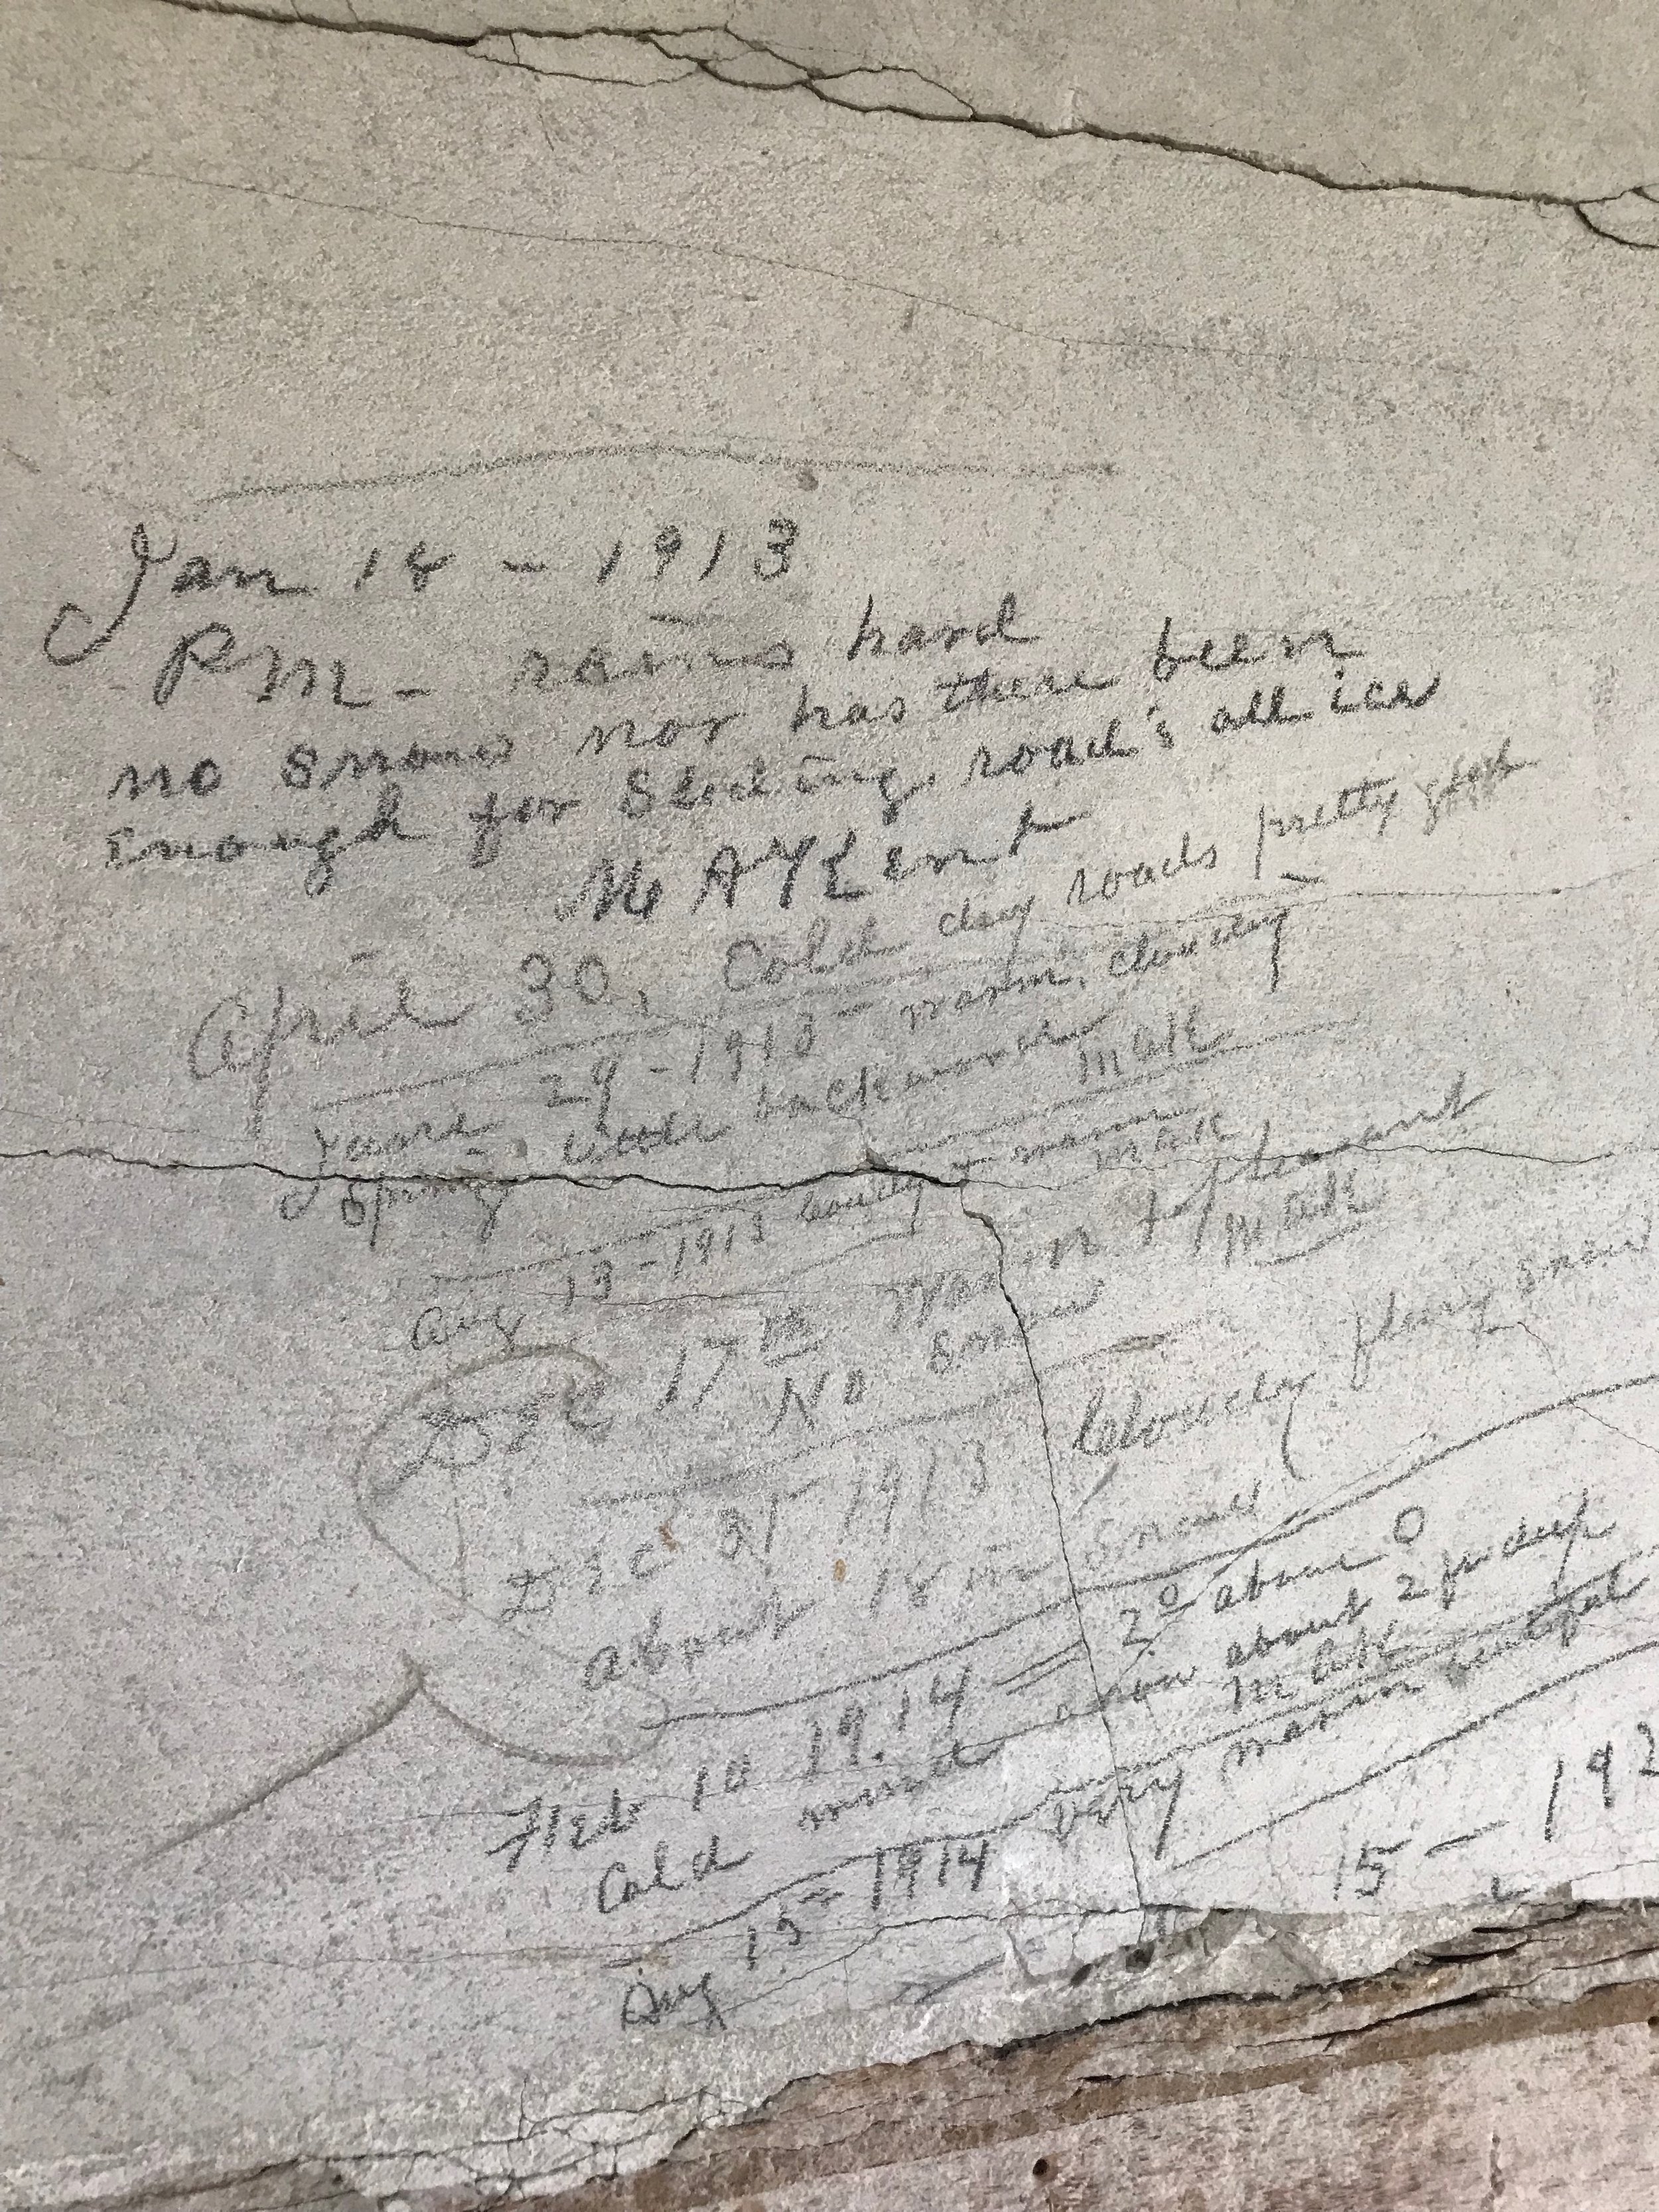 Jan 18 - 1913
PM - rains hard
no snow nor has there been
enough for Sleding, road's all ice
M A Kent
April 30, Cold day roads pretty
29 - 1913 - warm, cloudy
Spring, backward
MAK
Aug 13 - 1913 warm
MAK
Dec 17th Warm & pleasant
No Snow MAK
Dec 31 1913 Cloudy snow
about 18 in Snow
Feb 10 19.14 = 2° above 0
Cold wind snow about 2 deep
MAK
Aug 15 = 1914 Very warm
15 - 192